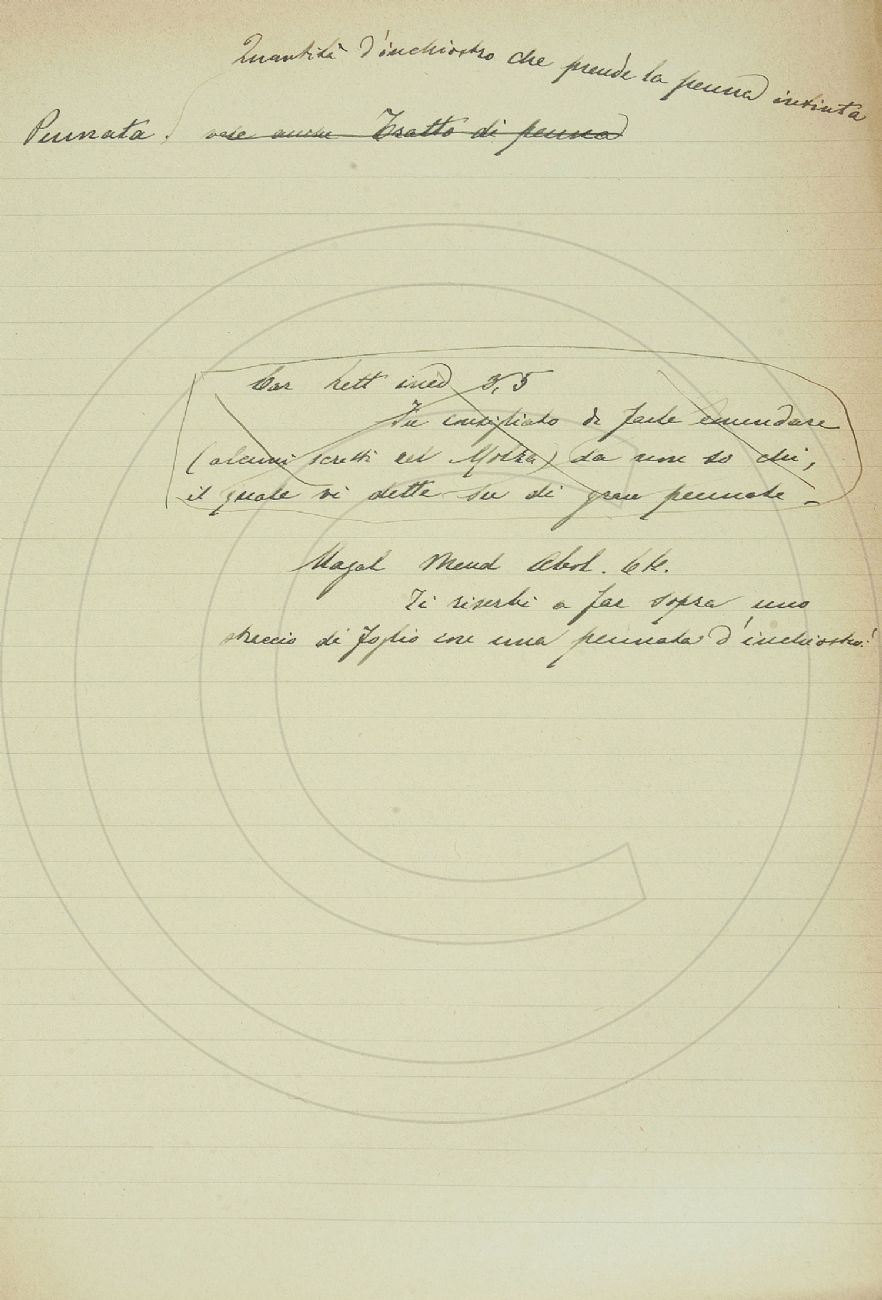 Quantità d'inchiostro che prende la penna intinta
Pennata. vale anche Tratto di penna
Car lett ined 3, 5
Fu consigliato di farle emendare
(alcuni scritti del Molza) da non so chi,
il quale vi dette su di gran pennate -
Magal Mend Abol. 64.
Ti riserbi a far sopra uno
straccio di foglio con una pennata d'inchiostro!